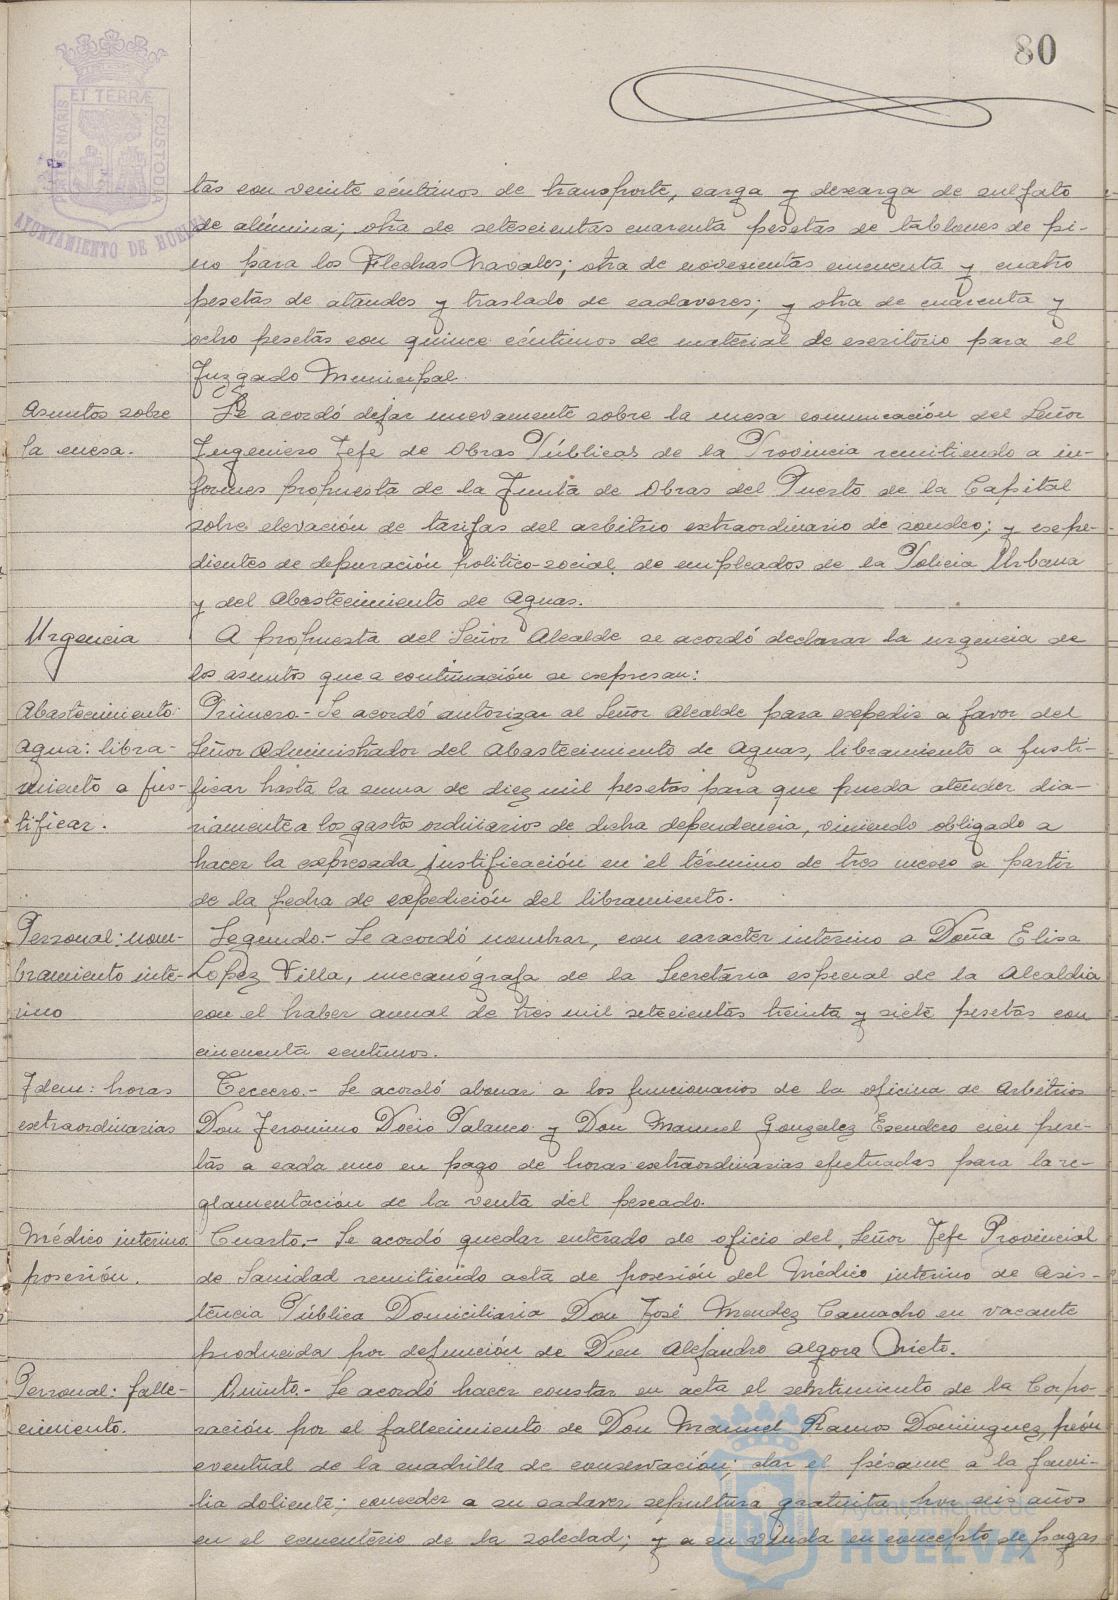 80
PORTUS MARIS ET TERRÆ CUSTODIA
AYUNTAMIENTO DE HUELVA
tas con veinte céntimos de transporte, carga y descarga de sulfato
de alúmina; otra de setescientas cuarenta pesetas de tablones de pi-
no para los Flechas Navales; otra de novecientas cincuenta y cuatro
pesetas de ataudes y traslado de cadaveres; y otra de cuarenta y
ocho pesetas con quince céntimos de material de escritorio para el
Juzgado Municipal.
Asuntos sobre
la mesa.
Se acordó dejar nuevamente sobre la mesa comunicación del Señor
Ingeniero Jefe de Obras Públicas de la Provincia remitiendo a in-
formes propuesta de la Junta de Obras del Puerto de la Capital
sobre elevación de tarifas del arbitrio extraordinario de sondeo; y expe-
dientes de depuración politico-social de empleados de la Policia Urbana
y del Abastecimiento de Aguas.
Urgencia
A propuesta del Señor Alcalde se acordó declarar la urgencia de
los asuntos que a continuación se expresan:
Abastecimiento
Agua: libra-
miento a jus-
tificar.
Primero.- Se acordó autorizar al Señor Alcalde para expedir a favor del
Señor Administrador del Abastecimiento de Aguas, libramiento a justi-
ficar hasta la suma de diez mil pesetas para que pueda atender dia-
riamente a los gastos ordinarios de dicha dependencia, viniendo obligado a
hacer la expresada justificación en el término de tres meses a partir
de la fecha de expedición del libramiento.
Personal: nom-
bramiento inte-
rino
Segundo.- Se acordó nombrar, con caracter interino a Doña Elisa
Lopez Villa, mecanógrafa de la Secretaria especial de la Alcaldia
con el haber anual de tres mil setecientas treinta y siete pesetas con
cincuenta centimos.
Idem: horas
extraordinarias
Tercero.- Se acordó abonar a los funcionarios de la oficina de Arbitrios
Don Jeronimo Docio Palanco y Don Manuel Gonzalez Escudero cien pese-
tas a cada uno en pago de horas extraordinarias efectuadas para la re-
glamentación de la venta del pescado.
Médico interino:
posesión.
Cuarto.- Se acordó quedar enterado de oficio del Señor Jefe Provincial
de Sanidad remitiendo acta de posesión del Médico interino de Asis-
tencia Pública Domiciliaria Don José Mendez Camacho en vacante
producida por defunción de Don Alejandro Algora Nieto.
Personal: falle-
cimiento.
Quinto.- Se acordó hacer constar en acta el sentimiento de la Corpo-
ración por el fallecimiento de Don Manuel Ramos Dominguez, peón
eventual de la cuadrilla de conservación; dar el pésame a la fami-
lia doliente; conceder a su cadaver sepultura gratuita por seis años
en el cementerio de la Soledad; y a su viuda en concepto de pagas
Ayuntamiento de
HUELVA